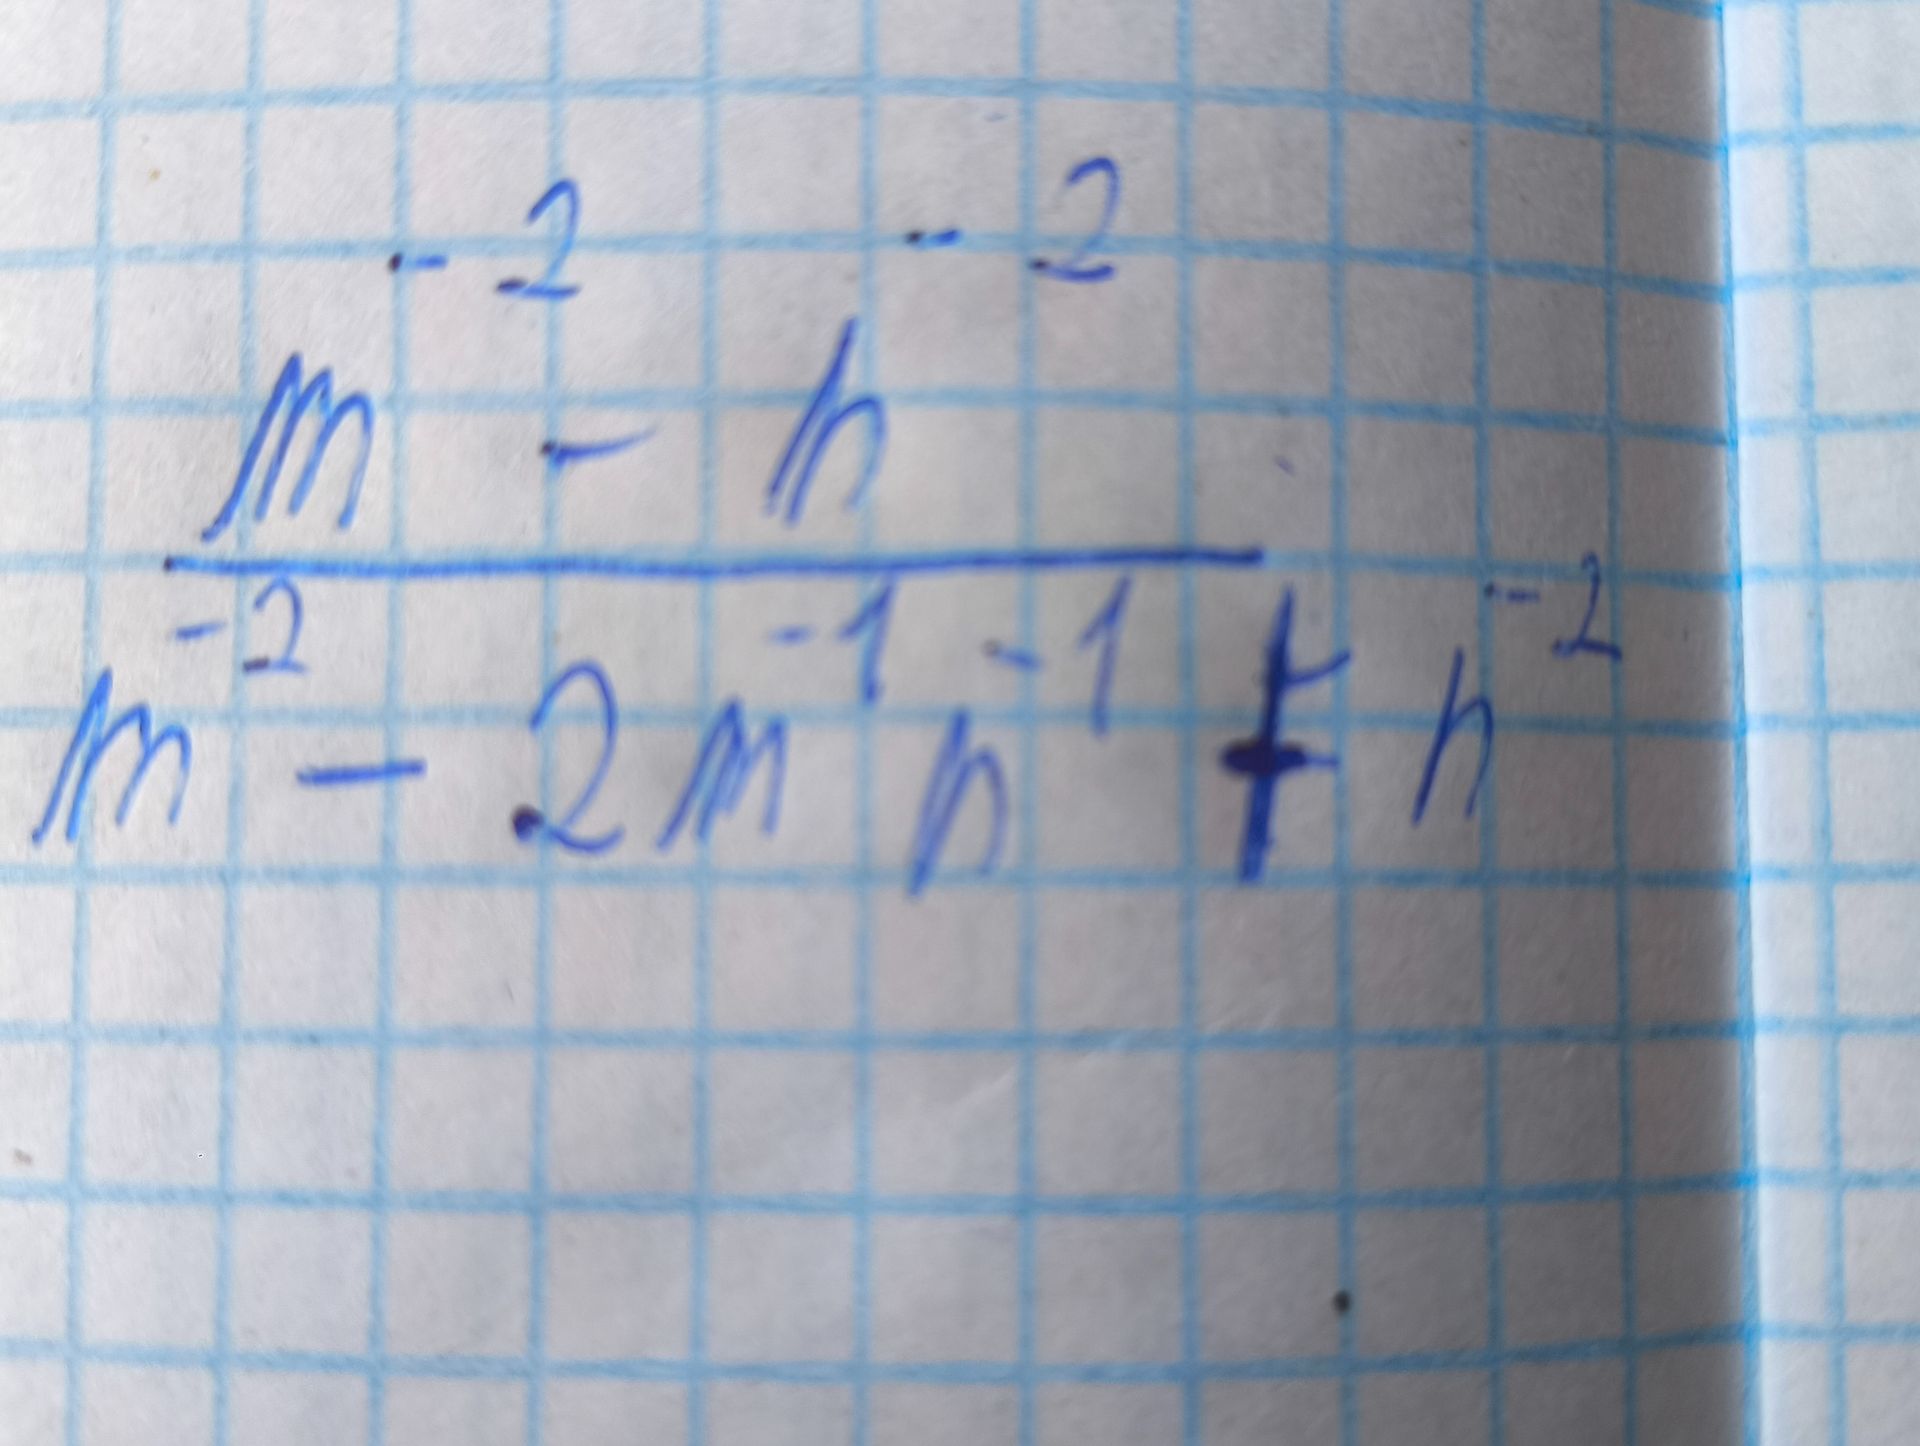 m⁻² - n⁻²
m⁻² - 2m⁻¹n⁻¹ + n⁻²